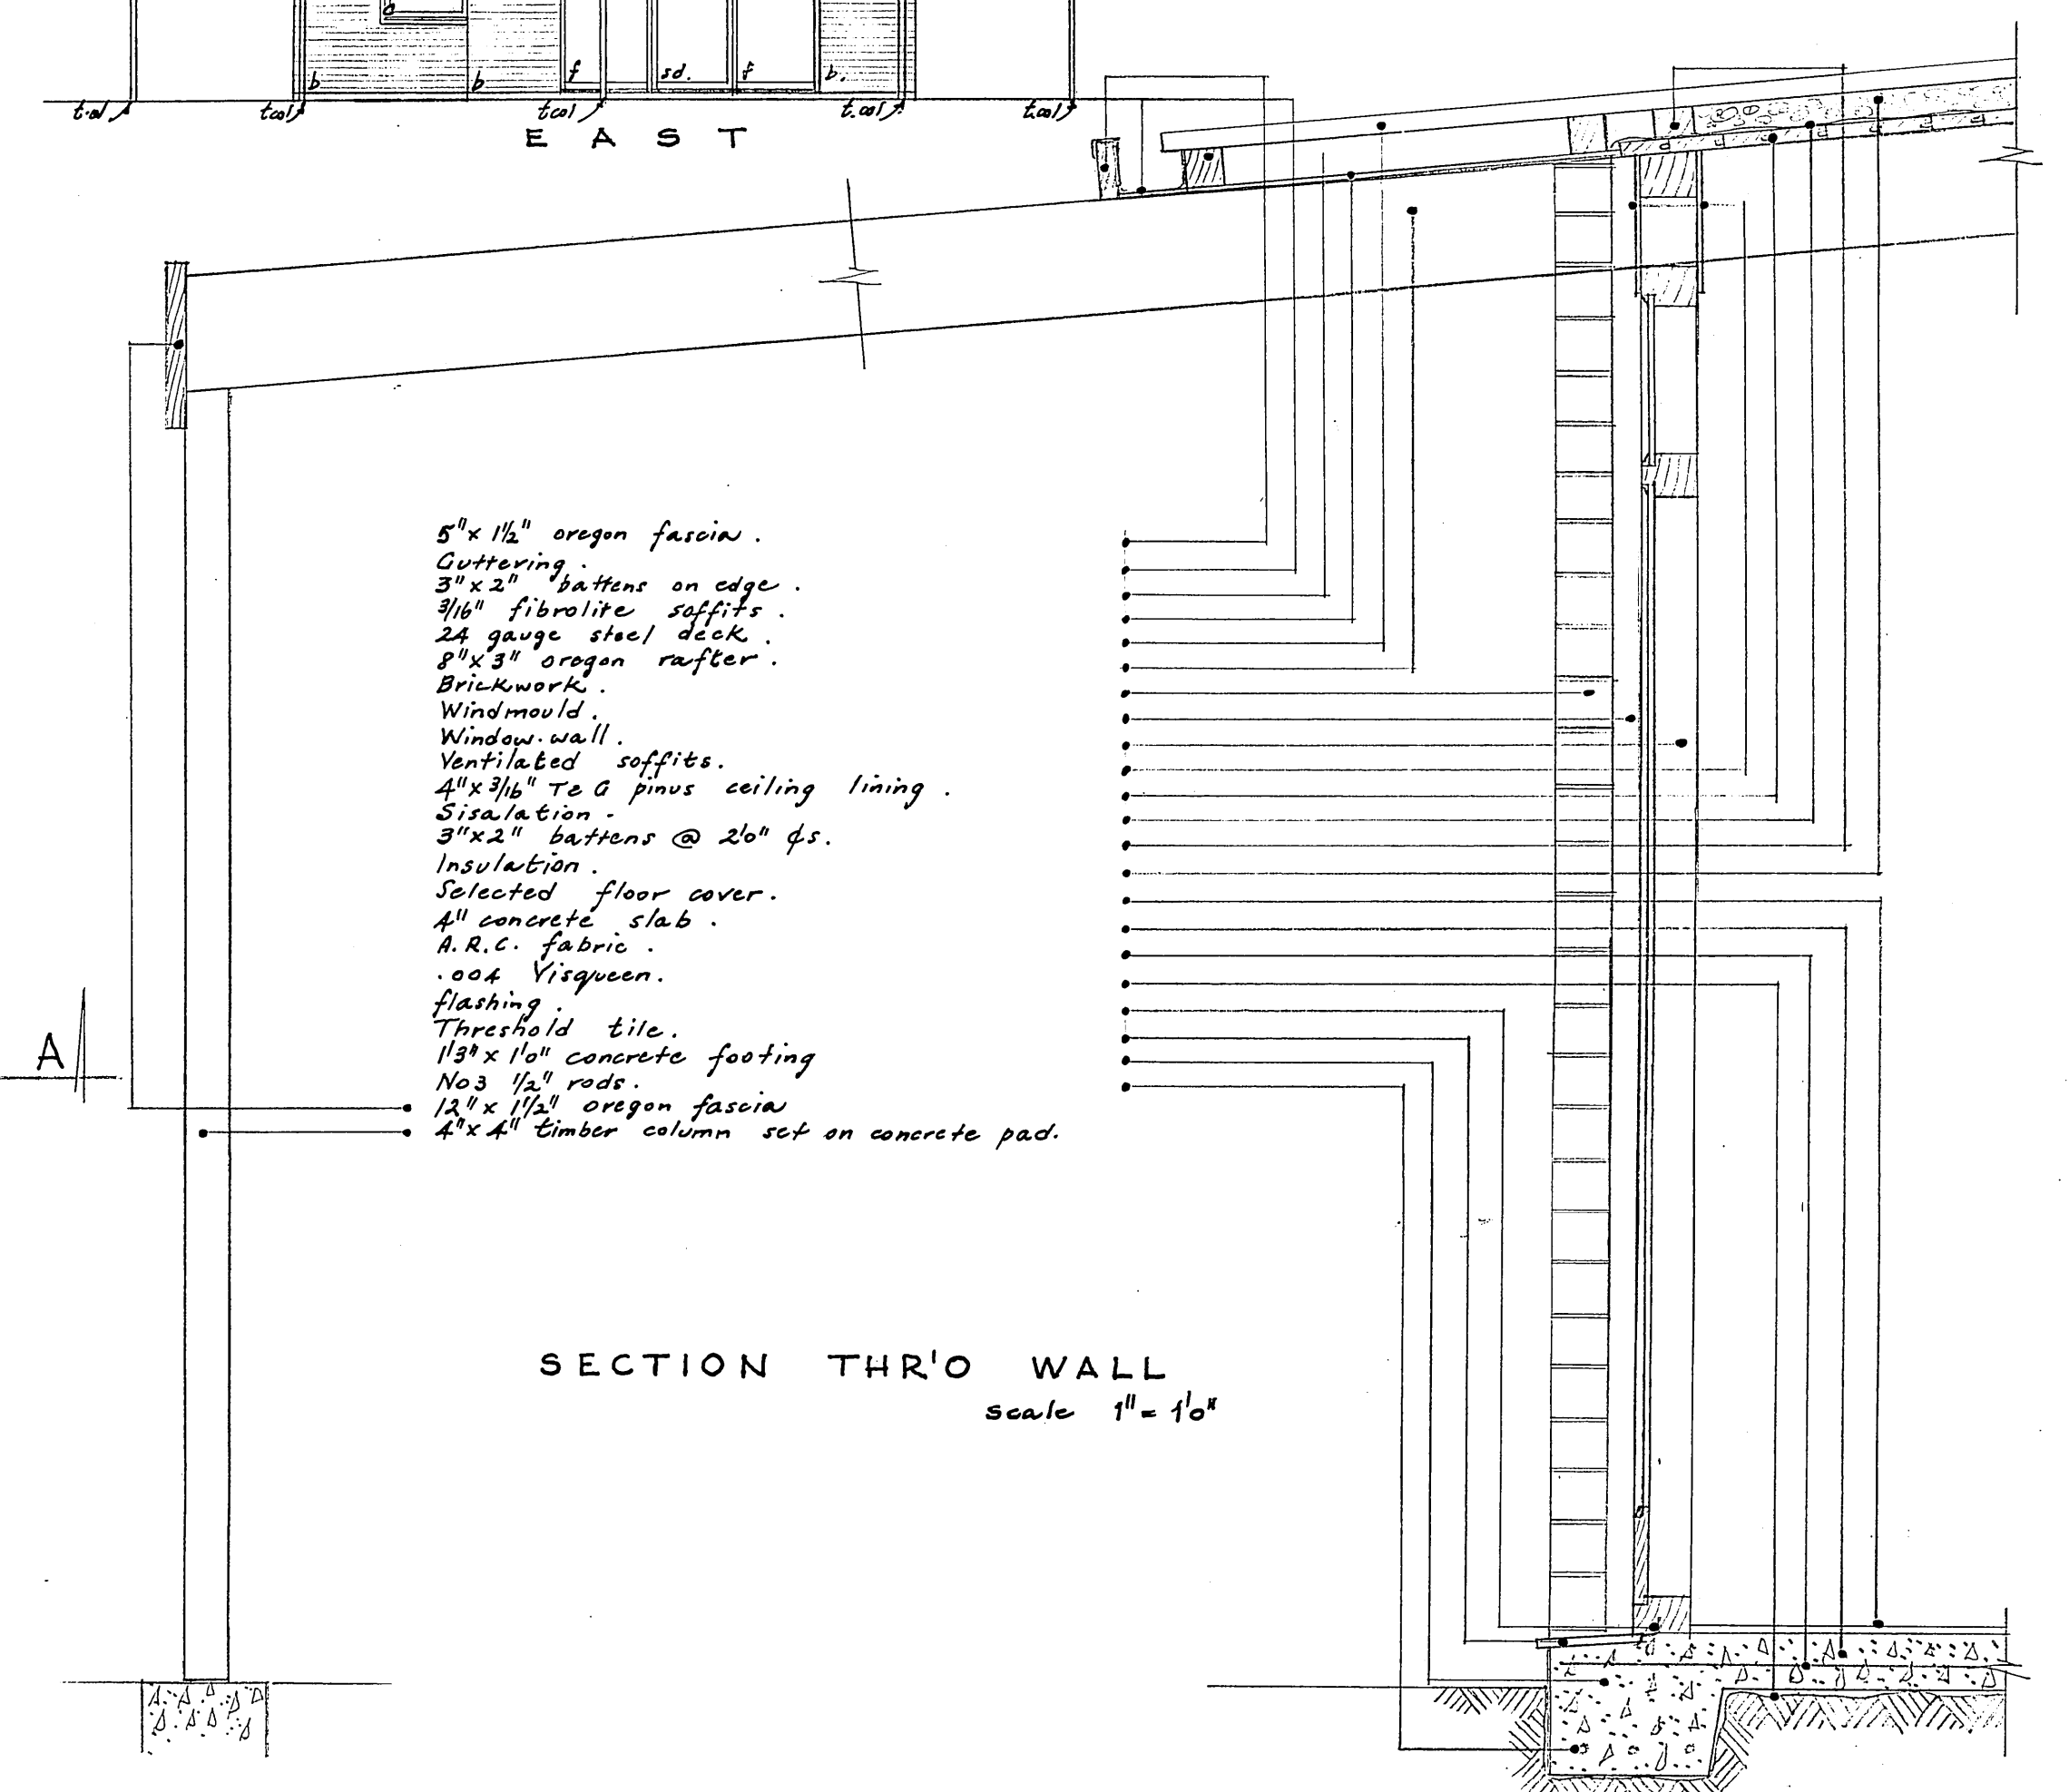 b b f sd. f b.
t.col tcol tcol t.col t.col
EAST
5"x 1½" oregon fascia .
Guttering .
3"x 2" battens on edge .
3/16" fibrolite soffits .
24 gauge steel deck .
8"x 3" oregon rafter .
Brickwork .
Windmould .
Window.wall .
Ventilated soffits .
4"x 3/16" T&G pinus ceiling lining .
Sisalation -
3"x2" battens @ 2'0" ¢s.
Insulation .
Selected floor cover .
4" concrete slab .
A.R.C. fabric .
.004 Visqueen .
flashing .
Threshold tile .
1'3" x 1'0" concrete footing
No3 1/2" rods .
12" x 1½" oregon fascia
4"x 4" timber column set on concrete pad.
A
SECTION THR'O WALL
scale 1" = 1'0"